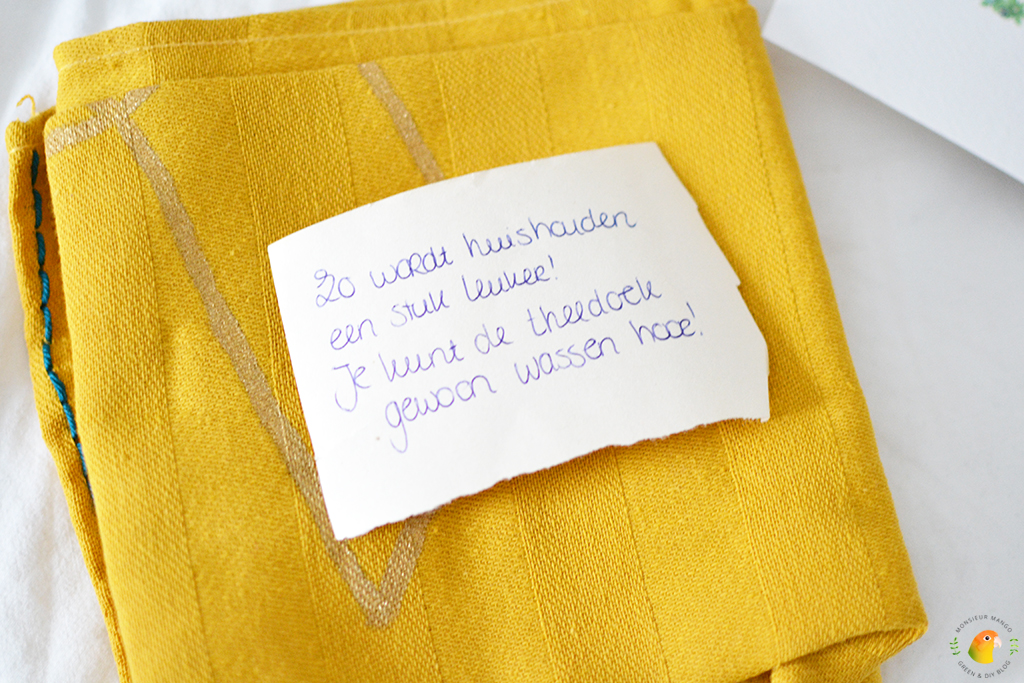 Zo wordt huishouden
een stuk leuker!
Je kunt de theedoek
gewoon wassen hoor!
MONSIEUR MANGO
GREEN & DIY BLOG